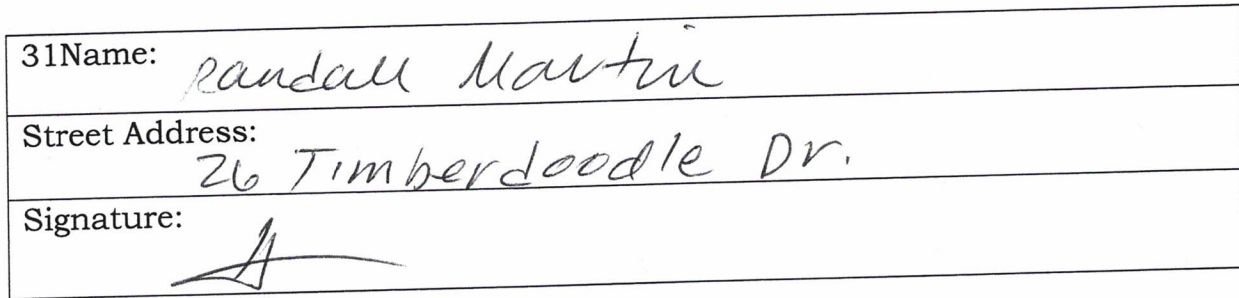 31Name: Randall Martin
Street Address:
26 Timberdoodle Dr.
Signature: